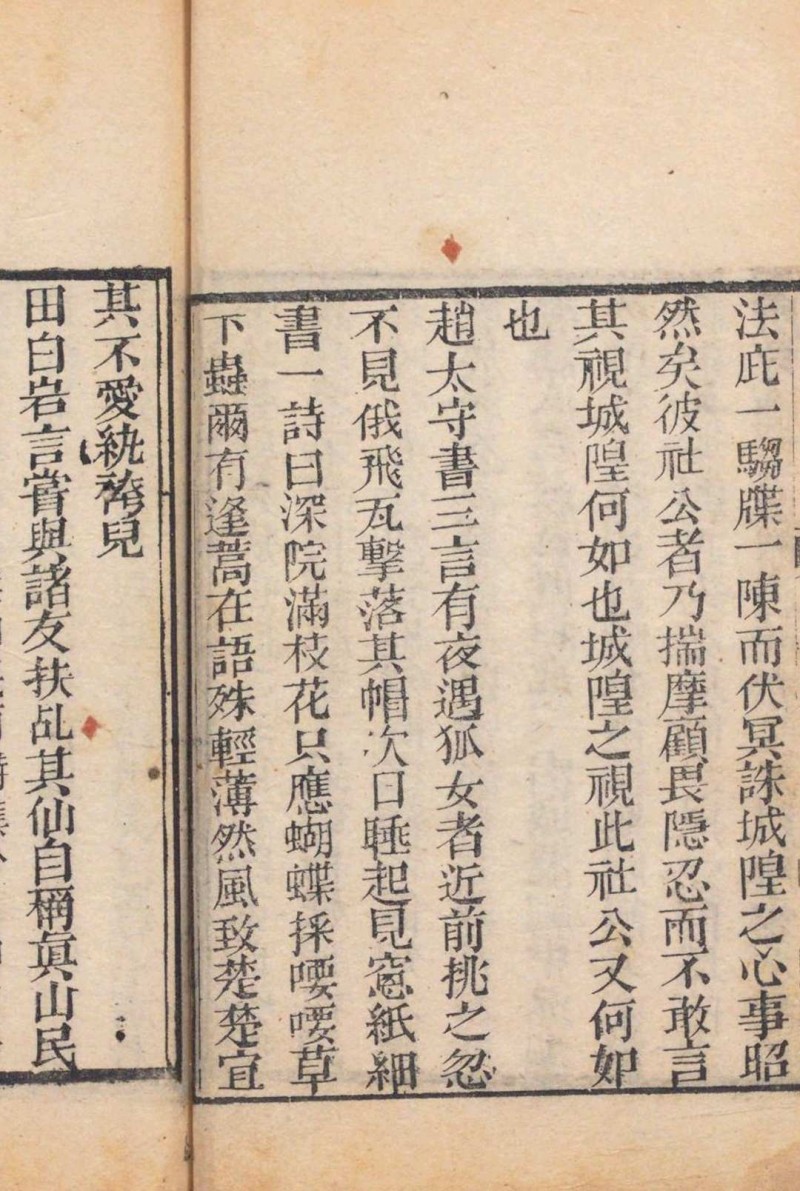 法庇一騶牒一陳而伏冥誅城隍之心事昭
然矣彼社公者乃揣摩顧畏隱忍而不敢言
其視城隍何如也城隍之視此社公又何如
也
趙太守書三言有夜遇狐女者近前挑之忽
不見俄飛瓦擊落其帽次日睡起見窓紙細
書一詩曰深院滿枝花只應蝴蝶採喓喓草
下蟲爾有逢蒿在語殊輕薄然風致楚楚宜
其不愛紈袴兒
田白岩言嘗與諸友扶乩其仙自稱眞山民